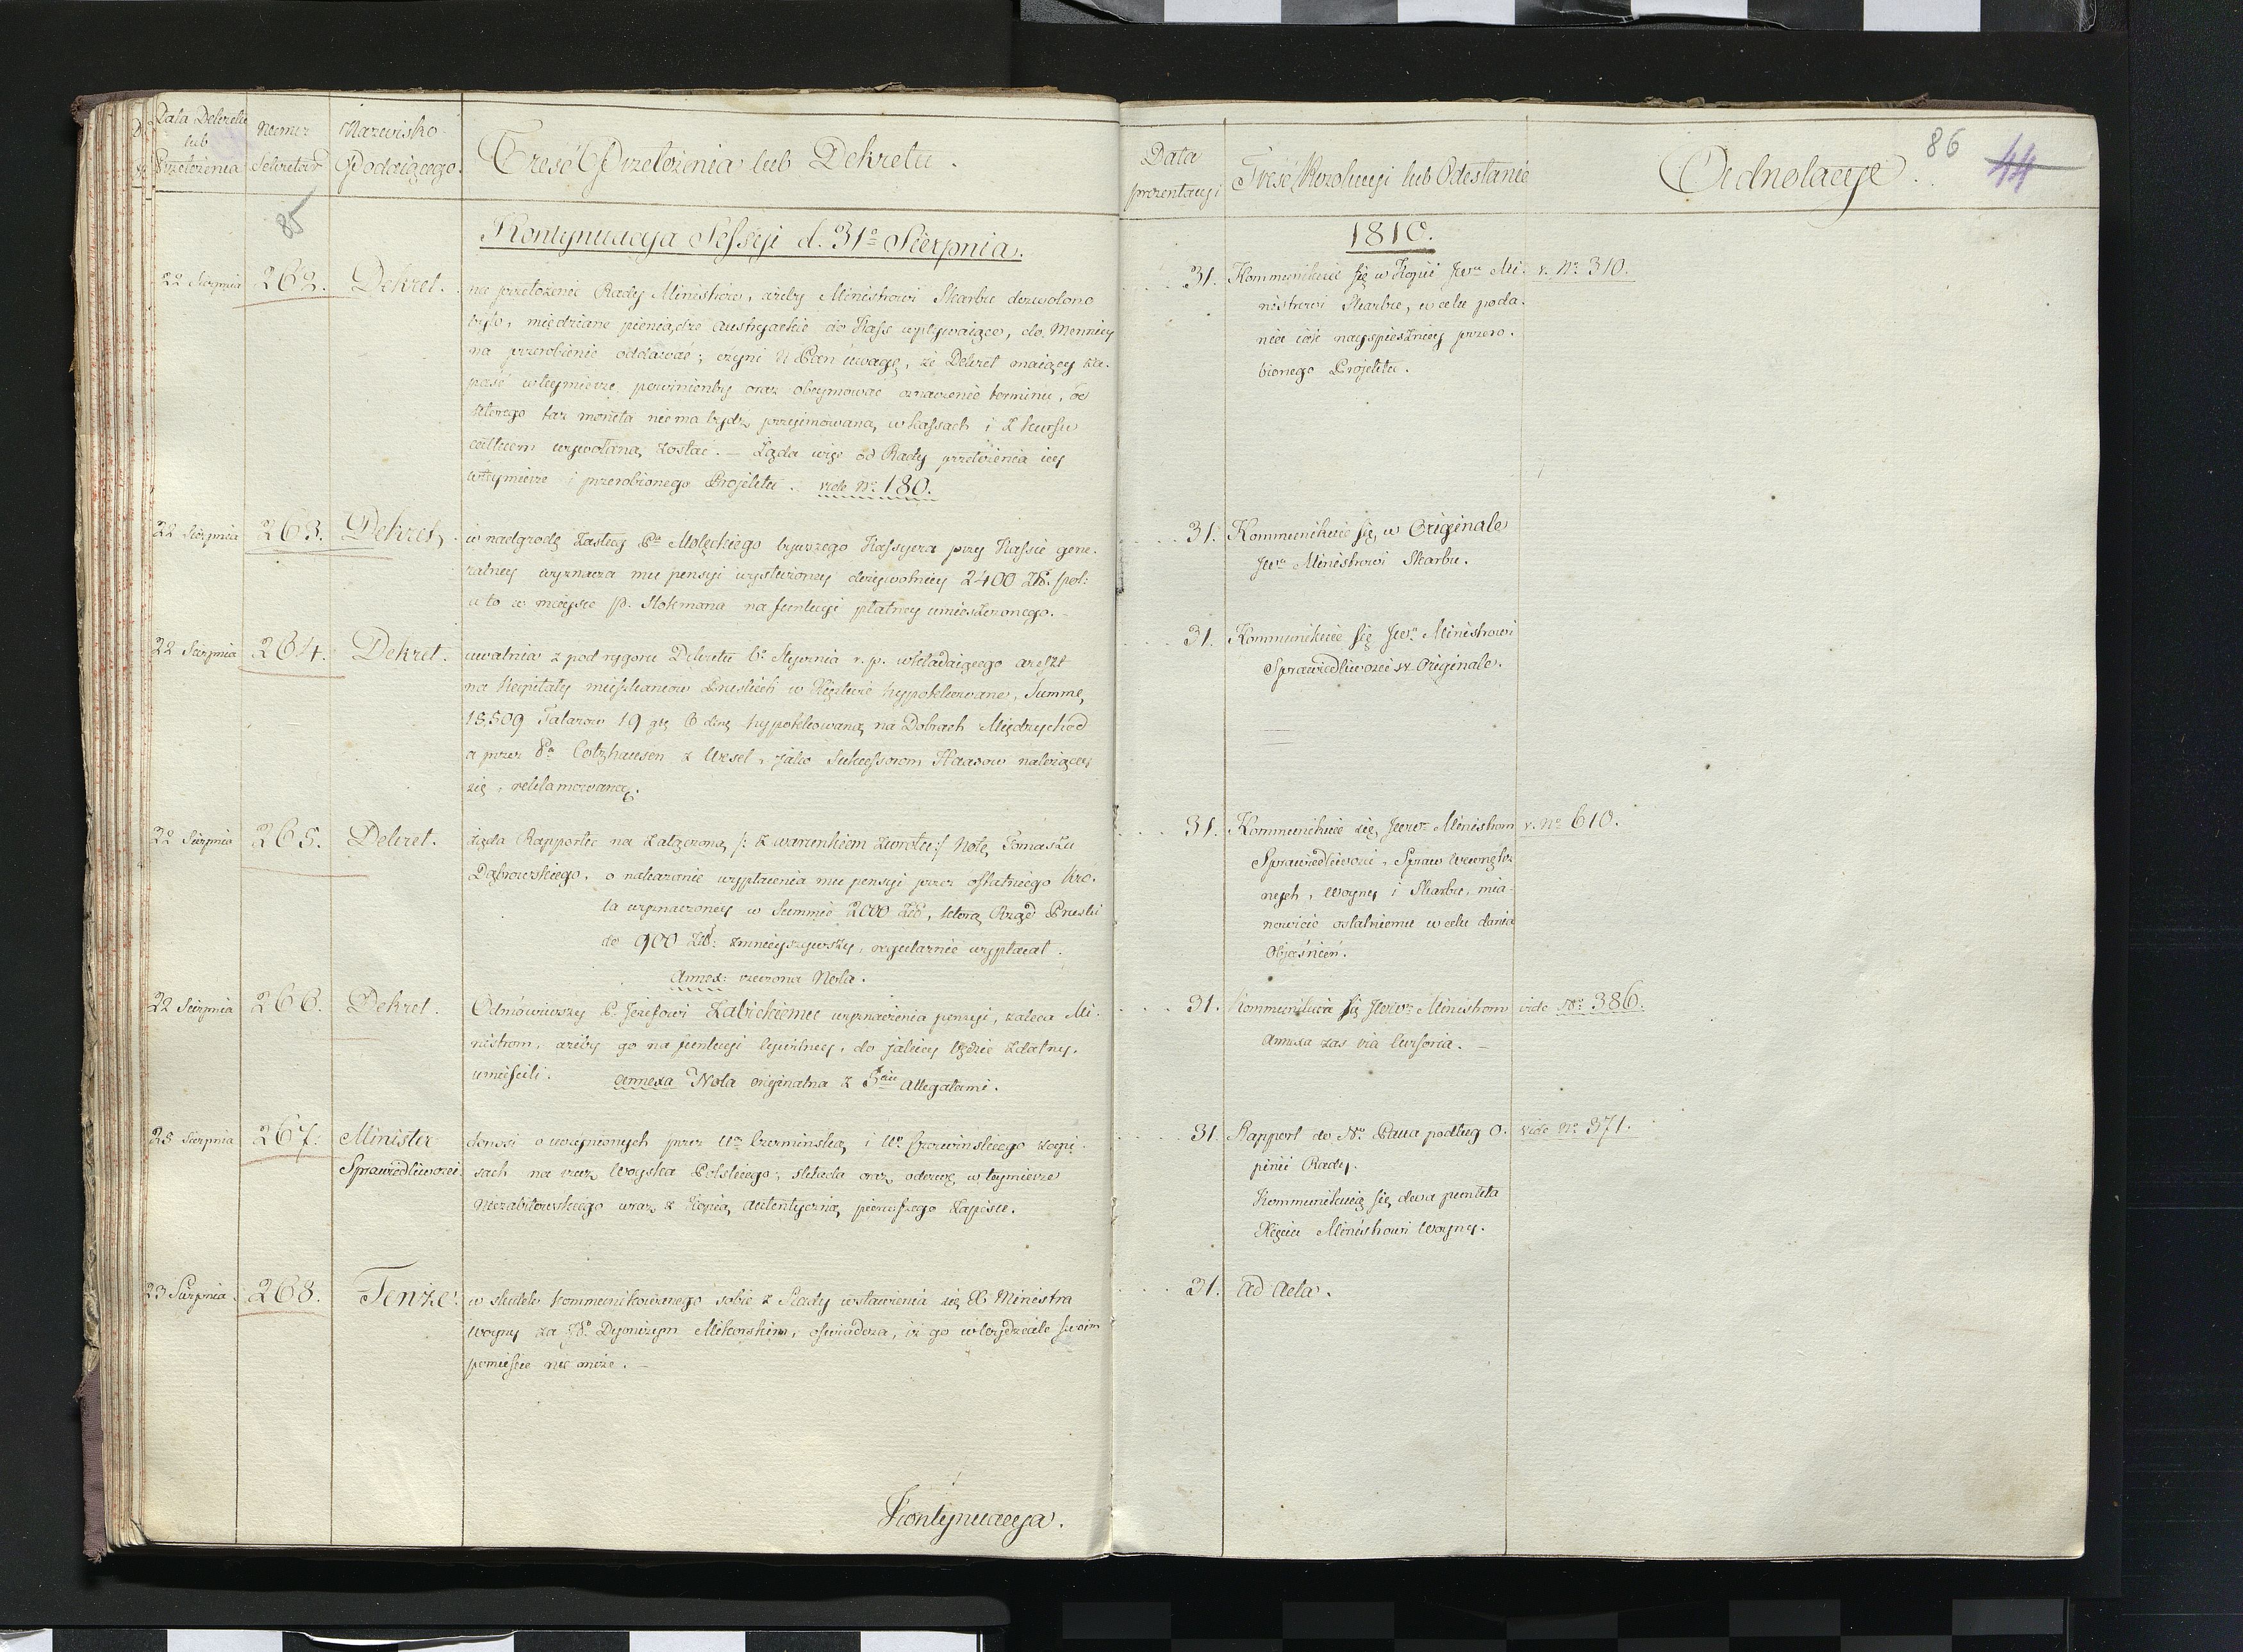 Data Dekretu
lub
Przełożenia
Numer
Sekretar.
Nazwisko
Podaiącego.
Treść Przełożenia lub Dekretu.
85
Kontynuacya Sessyi d. 31º Sierpnia.
22 Sierpnia 262. Dekret.
na przełożenie Rady Ministrów, ażeby Ministrowi Skarbu dozwolono
było, miedziane pieniądze Austryackie do Kass wpływaiące, do Mennicy
na przerobienie oddawać; czyni N Pan uwagę, że Dekret maiący za-
paść w tey mierze, powinienby oraz obeymować oznaczenie terminu, od
którego taż moneta nie ma bydź przyimowaną w kassach i z kursu
całkiem wywołaną zostać. – Żąda więc od Rady przełożenia iey
w tey mierze i przerobionego Projektu. vide Nº 180.
22 Sierpnia 263. Dekret,
w nadgrodę zasług Pª Molęckiego bywszego Kassyera przy Kassie gene-
ralney wyznacza mu pensyi wysłużoney dożywotniey 2400 Zł. pol:
a to w mieysce P. Stokmana na funkcyi płatney umieszczonego. –
22 Sierpnia 264. Dekret.
uwalnia z pod rygoru Dekretu 6º Stycznia r. p. wkładaiącego areszt
na Kapitały mieszkancow Pruskich w Xięstwie hypotekowane, Summę
18,509 Talarow 19 gr 6 hypotekowaną na Dobrach Międzychod
a przez Pª Colzhausen z Ursel, jako Sukcessorom Haasow należącey
się, reklamowaną.
22 Sierpnia 265. Dekret.
żąda Rapportu na załączoną /: z warunkiem zwrotu :/ Notę Tomasza
Dąbrowskiego, o nakazanie wypłacenia mu pensyi przez ostatniego Kró-
la wyznaczoney w Summie 2000 Zł, którą Rząd Pruski
do 900 Zł. zmnieyszywszy, regularnie wypłacał.
Annex: rzeczona Nota.
22 Sierpnia 266. Dekret.
Odmówiwszy P. Jozefowi Zabickiemu wyznaczenia pensyi, zaleca Mi-
nistrom, ażeby go na funkcyi cywilney, do jakiey będzie zdatny,
umieścili. Annexa Nota originalna z 5cia Allegatami.
23 Sierpnia 267. Minister
Sprawiedliwości
donosi o uczynionych przez Wª Czermińską i Wº zapi-
sach na rzecz Woyska Polskiego; składa oraz odezwę w teymierze
Niezabitowskiego wraz z Kopią autentyczną pierwszego Zapisu.
23 Sierpnia. 268. Tenże.
w skutek kommunikowanego sobie z Rady wstawienia się X Ministra
Woyny za Dyonizym Mikorskim, oświadcza, iż go w Wydziale swoim
pomieścić nie może. –
Kontynuacya.
Data
prezentacyi
Treść Rezolucyi lub Odesłanie
Adnotacye.
86
44
1810.
31. Kommunikuie się w Kopii Jwu Mi- v. Nº 310.
nistrowi Skarbu, w celu poda-
nia iak nayspieszniey przero-
bionego Projektu.
31. Kommunikuie się w Originale
Jwu Ministrowi Skarbu.
31. Kommunikuie się Jwu Ministrowi
Sprawiedliwości w Originale.
31. Kommunikuie się Jwwm Ministrom v. Nº 610.
Sprawiedliwości, Spraw Wewnętrz-
nych, Woyny i Skarbu, mia-
nowicie ostatniemu w celu dania
Objaśnień.
31. Kommunikuie się Jwwm Ministrom vide Nº 386.
Annexa zas via Cursoria. –
31. Rapport do Nº Pana podług O- vide Nº 371.
pinii Rady.
Kommunikuią się dwa punkta
Xięciu Ministrowi Woyny.
31. Ad Acta.